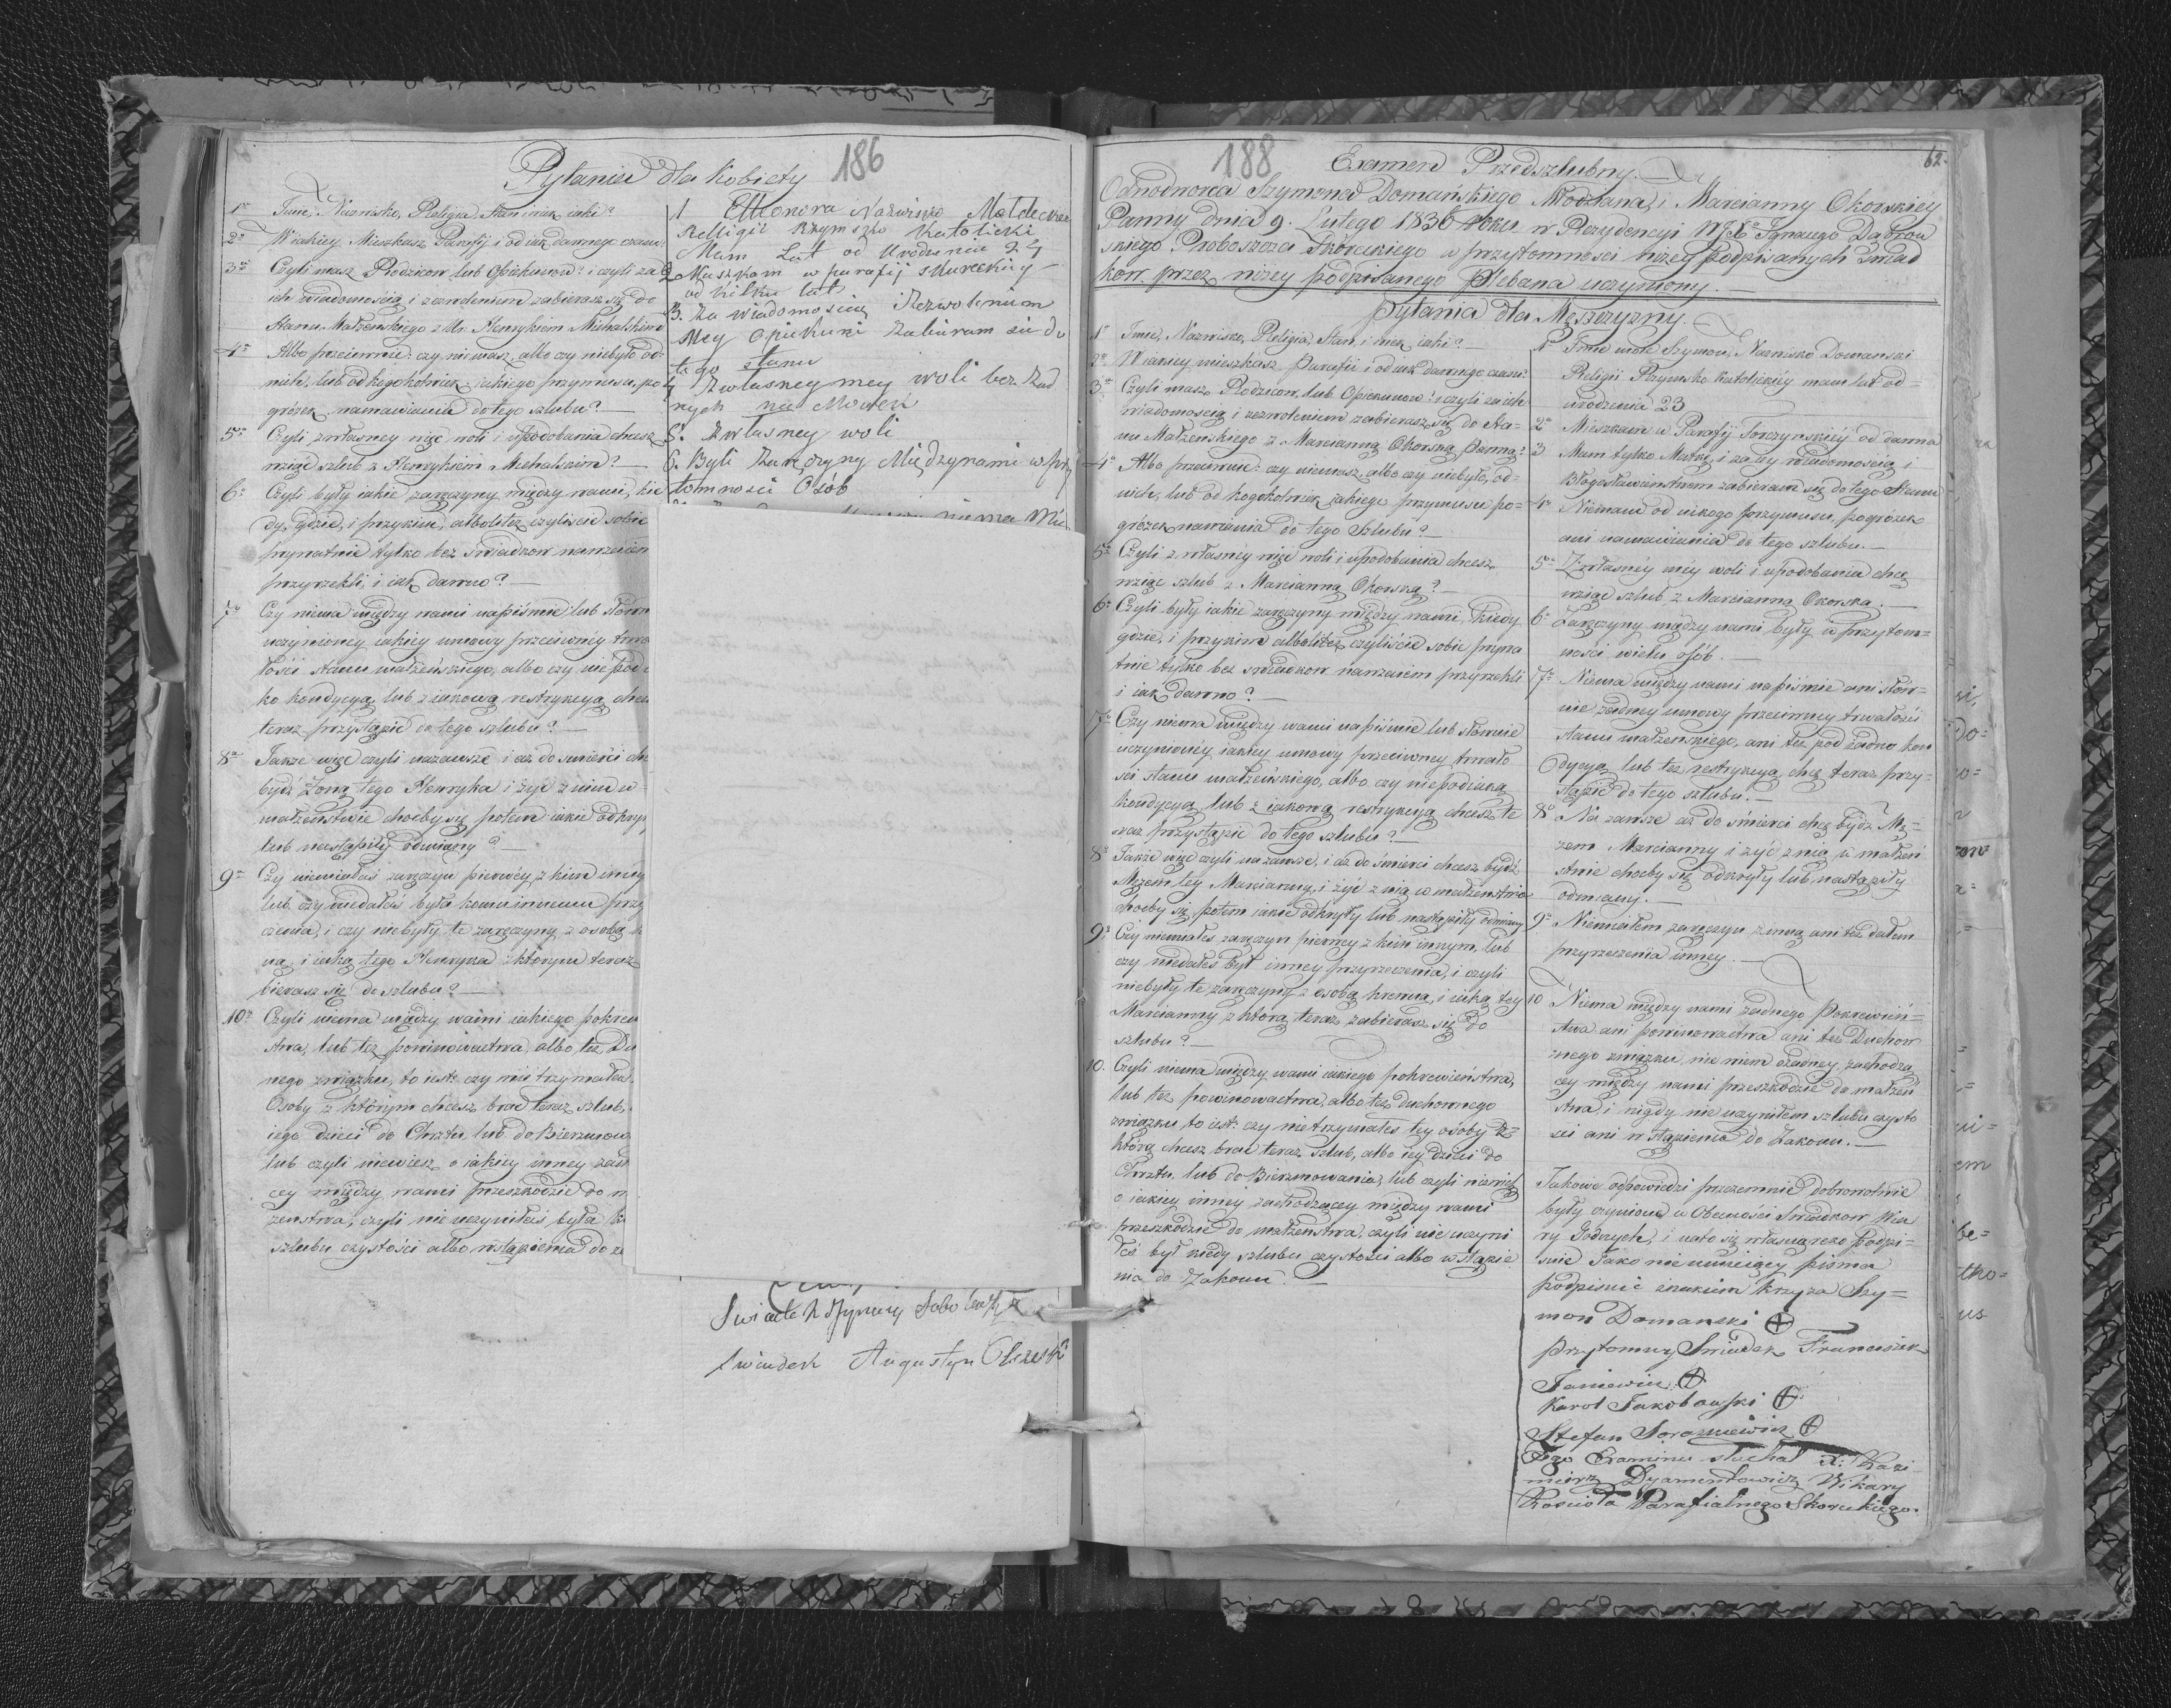 186
Pytania dla Kobiety
1o Imie, Nazwisko, Religia, Stan i wiek iaki?
2o W iakiey Mieszkasz Parafij i od iak dawnego czasu?
3o Czyli masz Rodzicow lub Opiekunow? i czyli za
ich wiadomością i zezwoleniem zabierasz się do
Stanu Małżenskiego z Henrykiem Michalskim
4o Albo przeciwnie: czy niemasz, albo czy niebyło od
nich, lub od kogokolwiek iakiego przymusu, po
grózek namawiania do tego szlubu?
5o Czyli z własney więc woli i upodobania chcesz
wziąć szlub z Henrykiem Michalskim?
6o Czyli były iakie zaręczyny między wami, kie
dy, gdzie, i przykim, alboliteż czyliście sobie
prywatnie tylko bez świadkow nawzaiem
przyrzekli, i iak dawno?
7o Czy niema między wami na piśmie lub słown
uczynioney iakiey umowy przeciwney trwa
łości stanu małżeńskiego, albo czy nie pod i
ko kondycyą, lub z iakową restrykcyą chces
teraz przystąpić do tego szlubu?
8o Takze więc czyli nazawsze i aż do smierci ch
bydź Żoną tego Henryka i żyć z nim w
małżeństwie choćby się potem iakie odkry
lub nastąpiły odmiany?
9o Czy niemiałaś zaręczyn pierwéy z kim inny
lub czy niedałaś była komu innemu przy
czenia, i czy niebyły te zaręczyny z osobą k
ną i iaką tego Henryka z którym teraz
bierasz się do szlubu?
10o Czyli niema między wami iakiego pokrew
stwa, lub też powinowactwa, albo też Du
nego związku, to iest: czy nie trzymałaś
Osoby z którym chcesz brać teraz szlub,
iego dzieci do Chrztu, lub do Bierzmow
lub czyli niewiesz o iakiey inney zach
cey między wami przeszkodzie do m
żenstwa, czyli nie uczyniłaś była ki
szlubu czystości albo wstąpienia do za
1 Elleonora Nazwisko Małdecka
Religii Rzymsko Katolicki
Mam Lat od Urodzenia 24
2 Muszkam w parafij skureckiy
od kilku lat
3. Za Wiadomoscią i Zezwolenium
Mey Opiekuni Zabiram sie do
tego stanu
4 Zwłasney mey woli bez żad
nych na Mowen
5. Zwłasney woli
6. Byli Zaręczyny Między nami w przy
tomnosci Osób
niema Mię
Swiadek
Swiadek Augustyn
188
62.
Examen Przedszlubny.
Odnodworca Szymona Domańskiego Młodziana, i Marcianny Okorskiéy
Panny dnia 9. Lutego 1836 Roku w Rezydencyi WJX Ignacego Dąbrow
skiego Proboszcza Skóreckiego w przytomności niżey podpisanych świad
kow. przez niżey podpisanego Plebana uczyniony.
Pytania dla Męszczyzny.
1o Imie, Nazwisko, Religia, Stan, i wiek iaki?
2o W iakiey mieszkasz Parafii i od iak dawnego czasu?
3o Czyli masz Rodzicow, lub Opiekunow? i czyli za ich
wiadomoscią i zezwoleniem zabierasz się do Sta=
nu Małżenskiego z Marcianną Okorską Panną?
4o Albo przeciwnie: czy niemasz, albo czy niebyło, od=
nich, lub od kogokolwiek iakiego przymusu po=
grózek namawiania do tego Szlubu?
5o Czyli z własnéy więc woli i upodobania chcesz
wziąć szlub z Marcianną Okorską?
6o Czyli były iakie zaręczyny między wami, kiedy
gdzie, i przykim albóliteż czyliście sobie prywa
tnie tylko bez świadkow nawzaiem przyrzekli
i iak dawno?
7o Czy niema między wami na piśmie lub słownie
uczynionéy iakiey umowy przeciwney trwało
ści stanu małżenskiego, albo czy niepodiaką
kondycyą lub z iakową restrykcyą chcesz te
raz przystąpić do tego szlubu?
8o Takze więc czyli nazawsze, i aż do śmierci chcesz bydź
Mężem tey Marcianny, i żyć z nią w małżenstwie
choćby się potem iakie odkryły lub nastąpiły odmiany
9o Czy niemiałes zaręczyn pierwey z kim innym, lub
czy niedałeś był inney przyrzeczenia, i czyli
niebyły te zaręczyny z osobą krewną, i iaką tey
Marcianny z którą teraz zabierasz się do
szlubu?
10. Czyli niema między wami iakiego pokrewieństwa,
lub też powinowactwa, albo też duchownego
związku to iest: czy nie trzymałes tey osoby z
którą chcesz brać teraz szlub, albo iey dzieci do
Chrztu, lub do Bierzmowania, lub czyli niewiesz
o iakiey inney zachodzącey między wami
przeszkodzie do małżenstwa, czyli nie uczyni
łeś był kiedy szlubu czystości albo wstąpie
nia do Zakonu.
1o Imie moie Szymon, Nazwisko Domanski
Religii Rzymsko Katolickiéy mam lat od=
urodzenia 23
2o Mieszkam w Parafij od dawna
3 Mam tylko Matkę, i za iey wiadomością i
Błogosławieństwem zabieram się do tego Stanu
4o Niemam od nikogo przymusu, pogrózek
ani namawiania do tego szlubu.
5o Z własney mey woli i upodobania chcę
wziąć szlub z Marcianną Okorską.
6o Zaręczyny między nami były w przytom=
ności wielu osób.
7o Niema między nami na piśmie ani słow=
nie żadney umowy przeciwney trwałości
stanu małżenskiego, ani też pod żadno kon
dycyą lub też restrykcyą chcę teraz przy=
stąpić do tego szlubu.
8o Na zawsze aż do śmierci chcę bydź Mę=
żem Marcianny i żyć z nią w małżeń
stwie choćby się odkryły lub nastąpiły
odmiany.
9o Niemiałem zaręczyn z inną ani też dałem
przyrzeczenia inney.
10 Niema między nami żadnego Pokrewień=
stwa ani powinowactwa ani też Duchow
nego związku, nie wiem o żadney zachodzą
cey między nami przeszkodzie do małżeń
stwa, i nigdy nie uczyniłem szlubu czysto
ści ani wstąpienia do Zakonu.
Takowe odpowiedzi przezemnie dobrowolnie
były czynione w Obecności Swiadkow Wia
ry Godnych, i nato się własnoręcznie podpi=
suie Jako nieumieiący pisma
podpisuie znakiem krzyza Szy=
mon Domanski +
Przytomny Swiadek Franciszek
+
Karol Jakobowski +
Stefan +
Tego Examinu słuchał X. Kazi
mierz Dyamentowicz Wikary
Kościoła Parafialnego Skoreckiego.